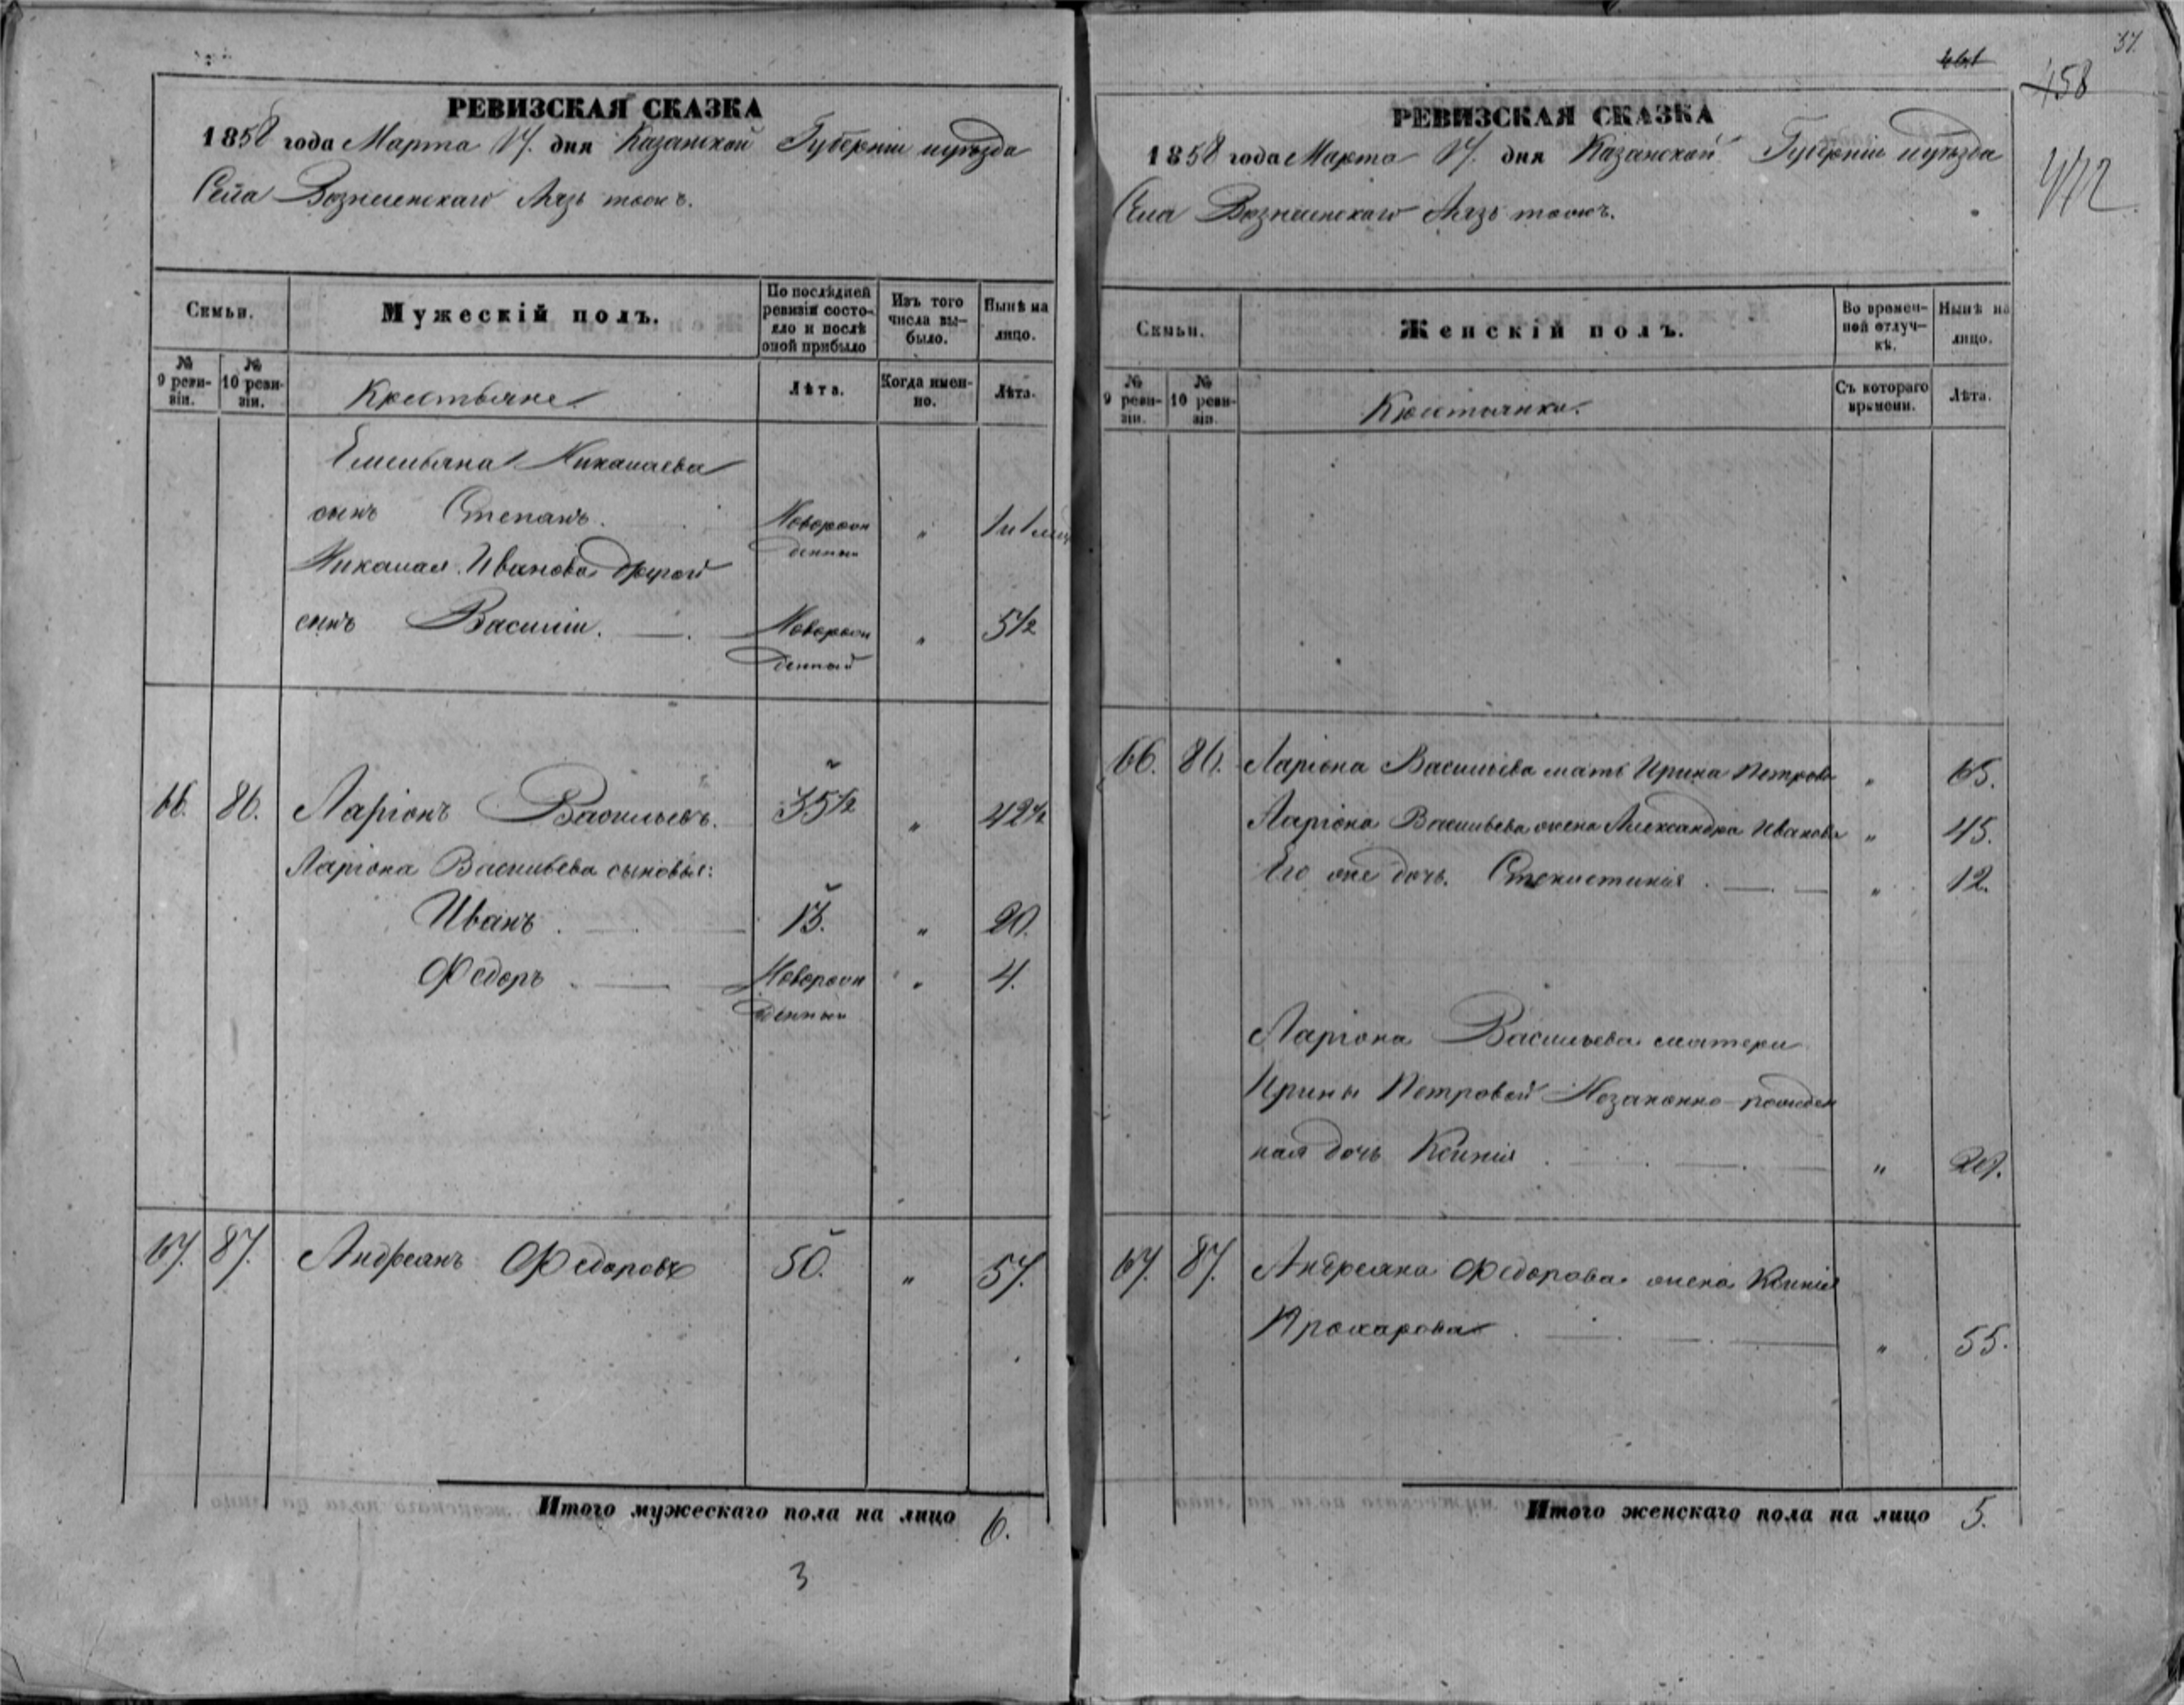 РЕВИЗСКАЯ СКАЗКА
1858 года Марта 17. дня Казанской Губерніи и уѣзда
Села Вознесенскаго Аязь тожъ.
Семьи.
Мужескій полъ.
По послѣдней ревизіи состояло и послѣ оной прибыло
Изъ того числа выбыло.
Нынѣ на лицо.
№ 9 ревизіи.
№ 10 ревизіи.
Крестьяне
Лѣта.
Когда именно.
Лѣта.
Емельяна Николаева
сынъ Степанъ. Новорожденный " 1 и 1 мѣц
Николая Иванова другой
сынъ Василій. Новорожденный " 5½
66. 86. Ларіонъ Васильевъ. 35½ " 42½
Ларіона Васильева сыновья:
Иванъ 13. " 20.
Федоръ Новорожденный " 4.
67. 87. Андреянъ Федоровъ 50. " 57.
Итого мужескаго пола на лицо 6.
3
57.
458
472
РЕВИЗСКАЯ СКАЗКА
1858 года Марта 17. дня Казанской Губерніи и уѣзда
Села Вознесенскаго Аязь тожъ.
Семьи.
Женскій полъ.
Во временной отлучкѣ.
Нынѣ на лицо.
№ 9 ревизіи.
№ 10 ревизіи.
Крестьянки.
Съ котораго времени.
Лѣта.
66. 86. Ларіона Васильева мать Ирина Петрова " 65.
Ларіона Васильева жена Александра Иванова " 45.
Его же дочь " 12.
Ларіона Васильева матери
Ирины Петровой Незаконно-рожден
ная дочь Ксенія "
67. 87. Андреяна Федорова жена Ксенія
Прохорова " 55.
Итого женскаго пола на лицо 5.